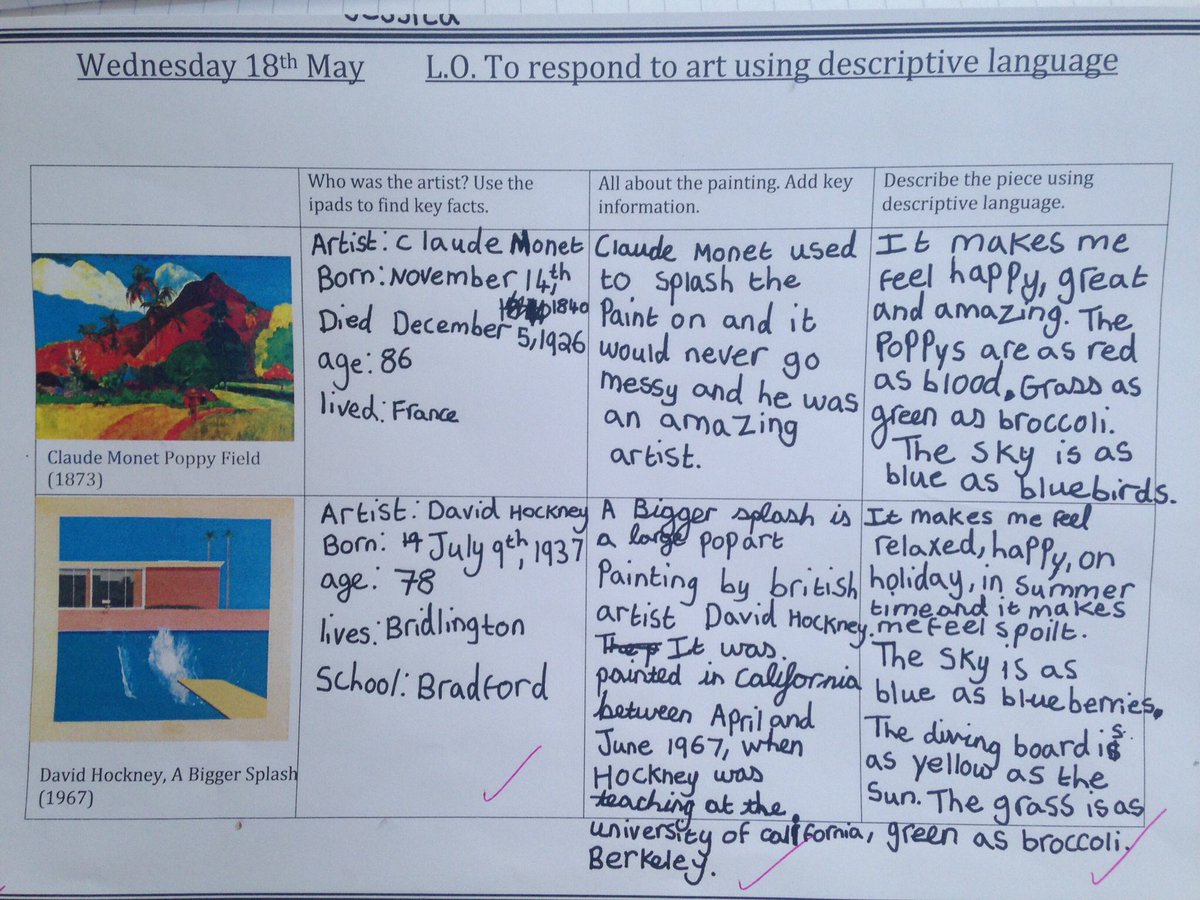 Jessica
Wednesday 18th May L.O. To respond to art using descriptive language
Who was the artist? Use the
ipads to find key facts.
All about the painting. Add key
information.
Describe the piece using
descriptive language.
Claude Monet Poppy Field
(1873)
Artist: Claude Monet
Born: November 14,th
1840
Died December 5, 1926
age: 86
lived: France
Claude Monet used
to splash the
Paint on and it
would never go
messy and he was
an amazing
artist.
It makes me
feel happy, great
and amazing. The
Poppys are as red
as blood. Grass as
green as broccoli.
The sky is as
blue as bluebirds.
David Hockney, A Bigger Splash
(1967)
Artist: David Hockney
Born: July 9th, 1937
age: 78
lives: Bridlington
School: Bradford
A Bigger splash is
a large pop art
Painting by british
artist David Hockney.
It was.
painted in California
between April and
June 1967, when
Hockney was
teaching at the
university of california,
Berkeley.
It makes me feel
relaxed, happy, on
holiday, in summer
time and it makes
me feel spoilt.
The sky is as
blue as blueberries.
The diving board is
as yellow as the
Sun. The grass is as
green as broccoli.